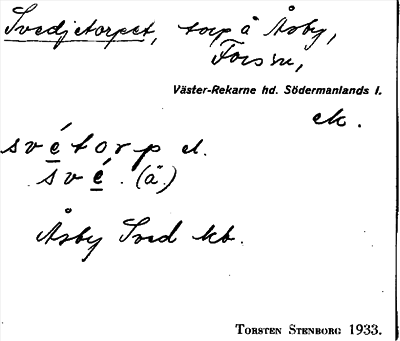 Svedjetorpet, torp å Åsby,
Fors sn,
Väster-Rekarne hd. Södermanlands l.
ek.
svétorp el.
své. (ä.)
Åsby Sved kb.
Torsten Stenborg 1933.